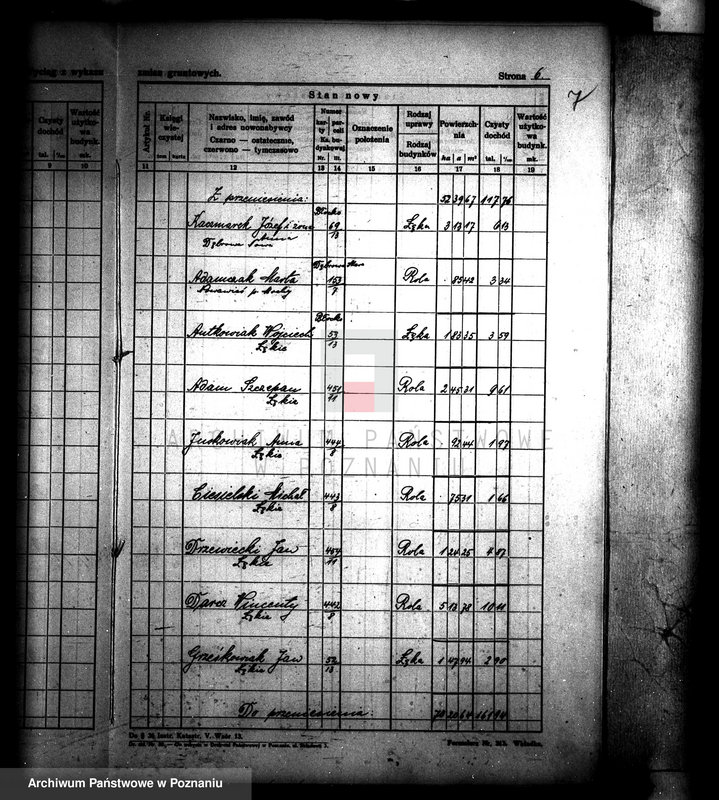 zmian gruntowych.
Strona 6
7
Stan nowy
Czysty dochód
Wartość użytkowa budynk.
tal. 1/100
mk.
9 10
Artykuł Nr.
Księgi wieczystej
tom karta
Nazwisko, imię, zawód i adres nowonabywcy
Czarno — ostatecznie, czerwono — tymczasowo
Numer
Oznaczenie położenia
Rodzaj uprawy
Rodzaj budynków
Powierzchnia
ha a m²
Czysty dochód
tal. 1/100
Wartość użytkowa budynk.
mk.
11 12 13 14 15 16 17 18 19
Z przeniesienia: 52 39 67 117 76
Kaczmarek Józef i żona 69/13 Łąka 3 13 17 6 13
Adamczak Marta 153/7 Rola 85 42 3 34
Antkowiak Wojciech 53/13 Łąka 1 83 35 3 59
Łąkie
Adam Szczepan 451/11 Rola 2 45 31 9 61
Łąkie
Juskowiak Anna 444/8 Rola 92 44 1 97
Łąkie
Ciesielski Michał 443/8 Rola 75 31 1 66
Łąkie
Drzewiecki Jan 454/11 Rola 1 24 25 4 87
Łąkie
Wincenty 442/8 Rola 5 13 78 10 11
Łąkie
Grześkowiak Jan 52/13 Łąka 1 47 94 2 90
Łąkie
Do przeniesienia:
Do § 36 Instr. Katastr. V. Wzór 13.
Formularz Nr. 263. Wkładka.
ARCHIWUM PAŃSTWOWE
W POZNANIU
Archiwum Państwowe w Poznaniu